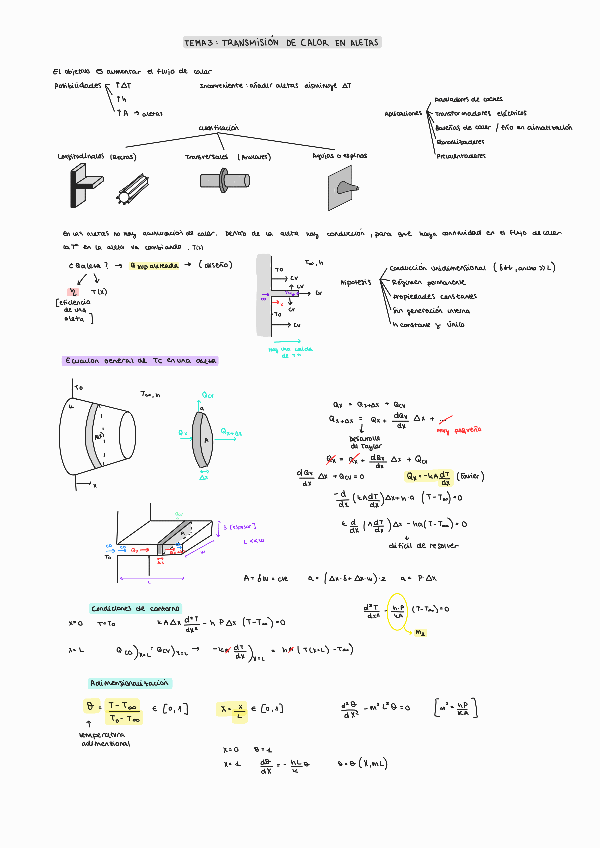 TEMA 3: TRANSMISIÓN DE CALOR EN ALETAS
El objetivo es aumentar el flujo de calor
Posibilidades
↑ΔT
↑h
↑A → aletas
Inconveniente: añadir aletas disminuye ΔT
Aplicaciones
Radiadores de coches
Transformadores eléctricos
Baterías de calor / frío en climatización
Precalentadores
Clasificación
Longitudinales (Rectas)
Transversales (Anulares)
Agujas o espinas
En las aletas no hay acumulación de calor. Dentro de la aleta hay conducción, para que haya continuidad en el flujo de calor
la Tª en la aleta va cambiando. T(x)
¿Q aleta? → Q sup aleteada → (diseño)
η T(x)
[eficiencia de una aleta]
T∞, h
T0
CV
CV
CV
CV
T0
CV
Hay una caída de Tª
Hipótesis
Conducción unidimensional (δ↓↓, ancho >> L)
Régimen permanente
Propiedades constantes
Sin generación interna
h constante y único
Ecuación general de TC en una aleta
T0
T∞, h
A(x)
x
Qcv
a
Qx
A
Qx+Δx
Δx
Qx = Qx+Δx + Qcv
Qx+Δx = Qx + dQx/dx Δx + ...
muy pequeño
Desarrollo de Taylor
Qx = Qx + dQx/dx Δx + Qcv
dQx/dx Δx + Qcv = 0
Qx = -kA dT/dx (Fourier)
-d/dx (kA dT/dx) Δx + h·a (T-T∞) = 0
k d/dx (A dT/dx) Δx - ha(T-T∞) = 0
difícil de resolver
T0
δ (espesor)
L << w
w
L
A = δ·W = cte
a = (Δx·δ + Δx·w)·2
a = P·Δx
Condiciones de contorno
x=0 T=T0
kAΔx d²T/dx² - h P Δx (T-T∞) = 0
d²T/dx² - h·P/kA (T-T∞) = 0
x=L QCD)x=L = QCV)x=L → -kA dT/dx)x=L = hA (T(x=L) - T∞)
Adimensionalización
θ = T-T∞ / T0-T∞ ∈ [0,1]
X = x/L ∈ [0,1]
d²θ/dX² - m²L²θ = 0
[m² = hP/kA]
temperatura adimensional
X=0 θ=1
X=1 dθ/dX = -hL/k θ
θ = θ(X, mL)